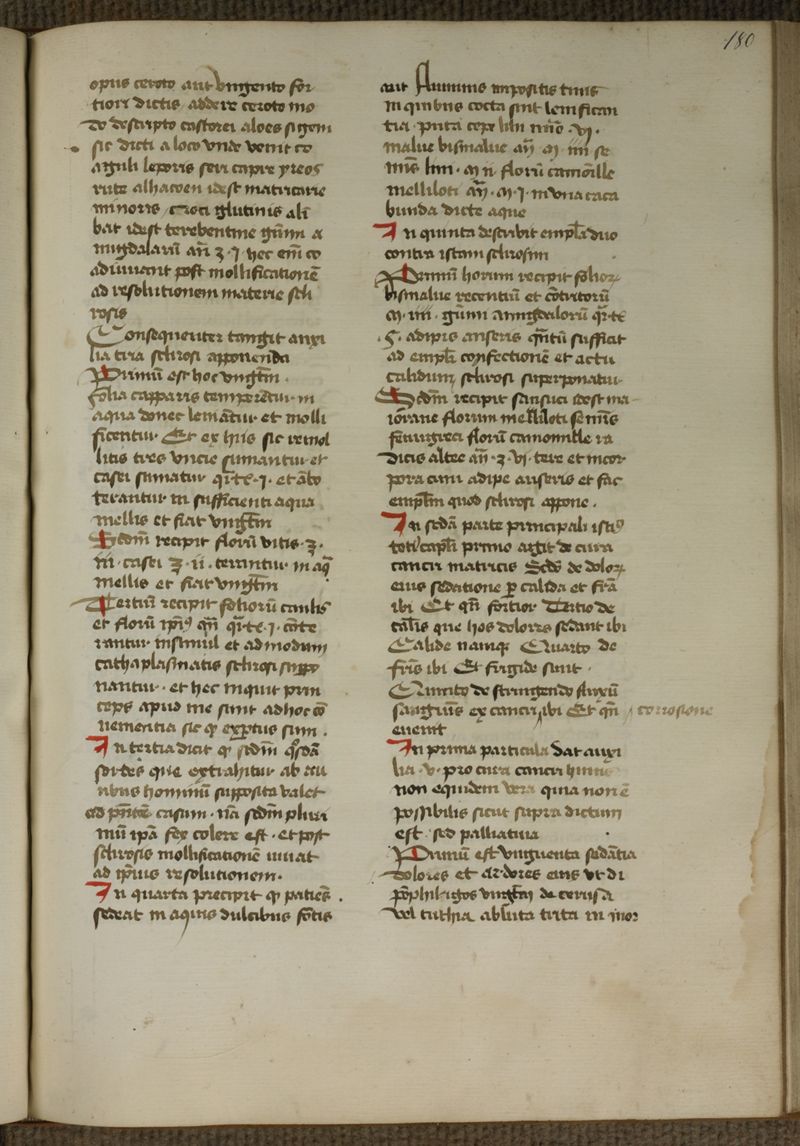 180
opus ceroto aut vngento for
tiori dictis addere ceroto mo
do descripto castorei aloes
sic dicti a loco vnde venit co
aguli leporis seu capre yreos
rute alhacoen idest matricarie
minoris croci glutinis ali
bat idest terebentine gūmi a
migdalarū an̄ ʒ · j · hec em̄ co
adiuuant post mollificationē
ad resolutionem materie scli
rosis
Consequenter tangit auxi
lia tria sclirosi apponenda
Primū est hoc vngtm̄ ·
folia capparis temperētur in
aqua donec leniāt̄ur et molli
ficentur Et ex hijs sic remol
litis tres vncie sumantur et
casei sumatur q̄r·te·j· et
terantur in sufficienti aqua
mellis et fiat vngtm̄
Sedm̄ recipit florū vitis · ʒ ·
iij · casei ʒ · ii · terantur in aq̄
mellis et fiat vngtm̄
Tertiū recipit foliorū caulis
et florū q̄r·te·j· cōte
rantur insimul et ad modum
cathaplasmatis sclirosi suppo
nantur · et hec inquit prin
ceps apud me sunt ad hoc
uementia sic ꝙ exꝑtus sum ·
In tertia dicit ꝙ sedm̄ quosdā
sordes que extrahitur ab au
ribus hominū supposita valet
ad pn̄tē casum · nā sedm̄ pluri
mū ipā fex colere est · et post
sclirosis mollificationē iuuat
ad ipius resolutionem ·
In quarta precipit ꝙ patiēs
sedeat in aquis dulcibus fōtis
aut fluminis impositis tinis
in quibus cocta sint lenifican
tia puta cepe lilii nūo · vj ·
malue bismalue an̄ · m · iiij se
mīs lini · m n florū camōille
melliloti an̄ · m · j · in vna caca
bunda dicte aque
In quinta describit emplā duo
contra istam sclirosim
Primū horum recipit folior
bismalue recentiū et cōtritorū
m · iiij · gūmi amigdalorū q̄r·te
· s · adipis anseris q̄ntū sufficit
ad emplī confectionē et actu
calidum sclirosi superponatur
Sedm̄ recipit sansuci idest ma
iorane florum melliloti semīs
fenugreci florū camomille ra
dicis altee an̄ · ʒ · vj · tere et incor
pora cum adipe anseris et fac
emplm̄ quod sclirosi appone ·
In sedā parte principali istiꝰ
toti capli primo agit de cura
cancri matricis Sedo de dolor
eius sedatione ꝑ calida et frīa
ibi Et qn̄ fortior Tertio de
calīs que hos dolores sedant ibi
Calide namqȝ Quarto de
frīs ibi Et frigide sunt ·
Quinto de stringendo fluxū
sanguīs ex cancri ibi Et qn̄ corrosione
euenit
In prima particula dat auxi
lia · v · pro cura cancri
non equidem vera quia non ē
possibilis sicut supra dictum
est sed palliatiua
Primū est vnguenta sedātia
dolores et ardores eius vt di
poplīligos vngtm̄ de cerusa
vel tuthia abluta trita in mor